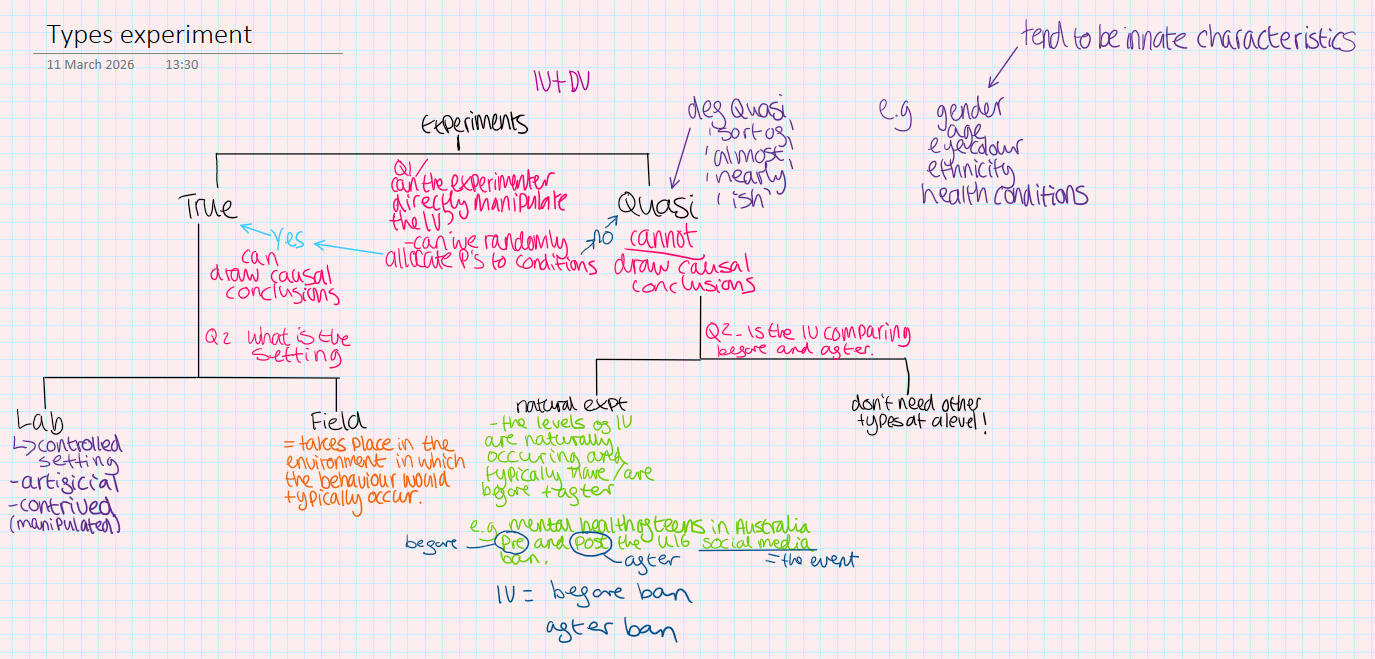 Types experiment
11 March 2026 13:30
tend to be innate characteristics
IV+DV
Experiments
def Quasi
'sort of'
'almost'
'nearly'
'ish'
e.g gender
age
eye colour
ethnicity
health conditions
True
Q1/
can the experimenter
directly manipulate
the IV?
-can we randomly
allocate P's to conditions
Yes
can
draw causal
conclusions
Quasi
no
cannot
draw causal
conclusions
Q2 What is the
setting
Q2 - Is the IV comparing
before and after.
Lab
↳controlled
setting
-artificial
-contrived
(manipulated)
Field
= takes place in the
environment in which
the behaviour would
typically occur.
natural expt
- the levels of IV
are naturally
occuring and
typically have/are
before + after
e.g mental health of teens in Australia
Pre and Post the U16 social media
ban.
before
after
= the event
IV = before ban
after ban
don't need other
types at a level!